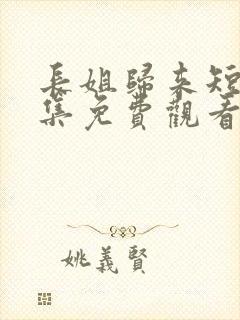 長姐歸來短
集免費觀看
姚義賢